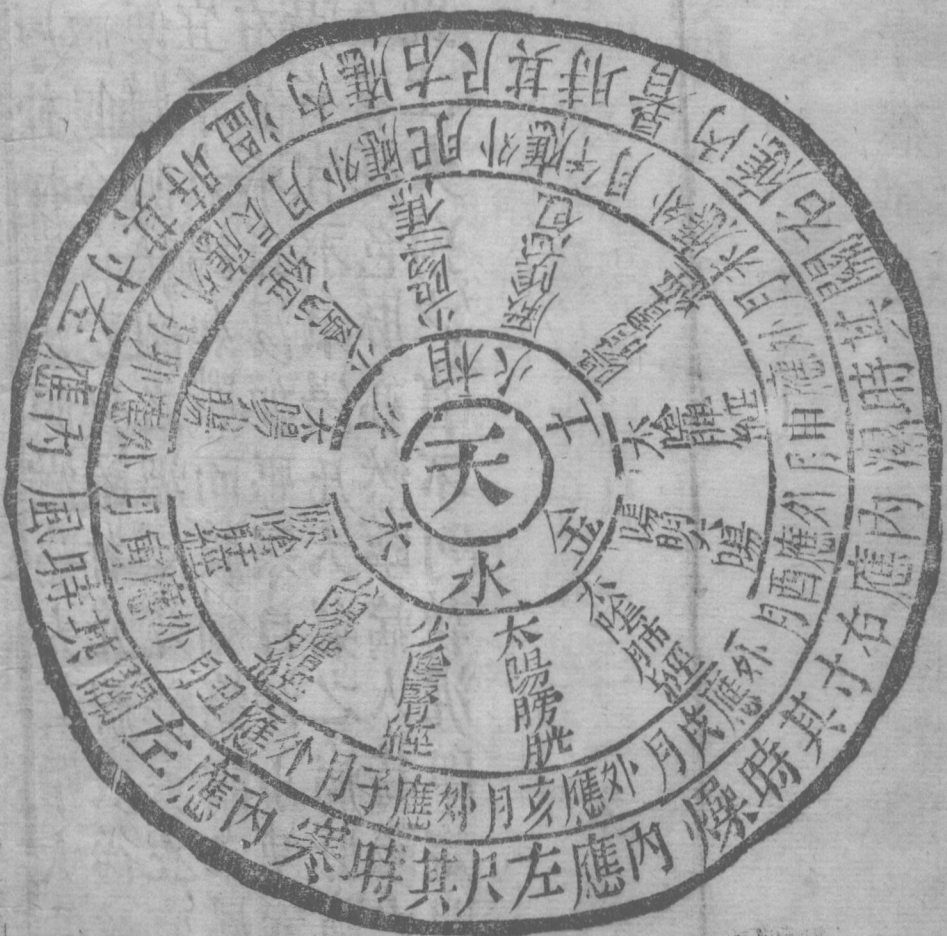 天
水
木
火
相火
土
金
太陽膀胱
少陰腎經
少陽膽經
厥陰肝經
太陽小腸
少陰心經
少陽三焦
厥陰心包
陽明胃經
太陰脾經
陽明大腸
太陰肺經
外應亥月
外應子月
外應丑月
外應寅月
外應卯月
外應辰月
外應巳月
外應午月
外應未月
外應申月
外應酉月
外應戌月
內應左尺其時寒
內應左關其時風
內應左寸其時溫
內應右尺其時暑
內應右關其時濕
內應右寸其時燥